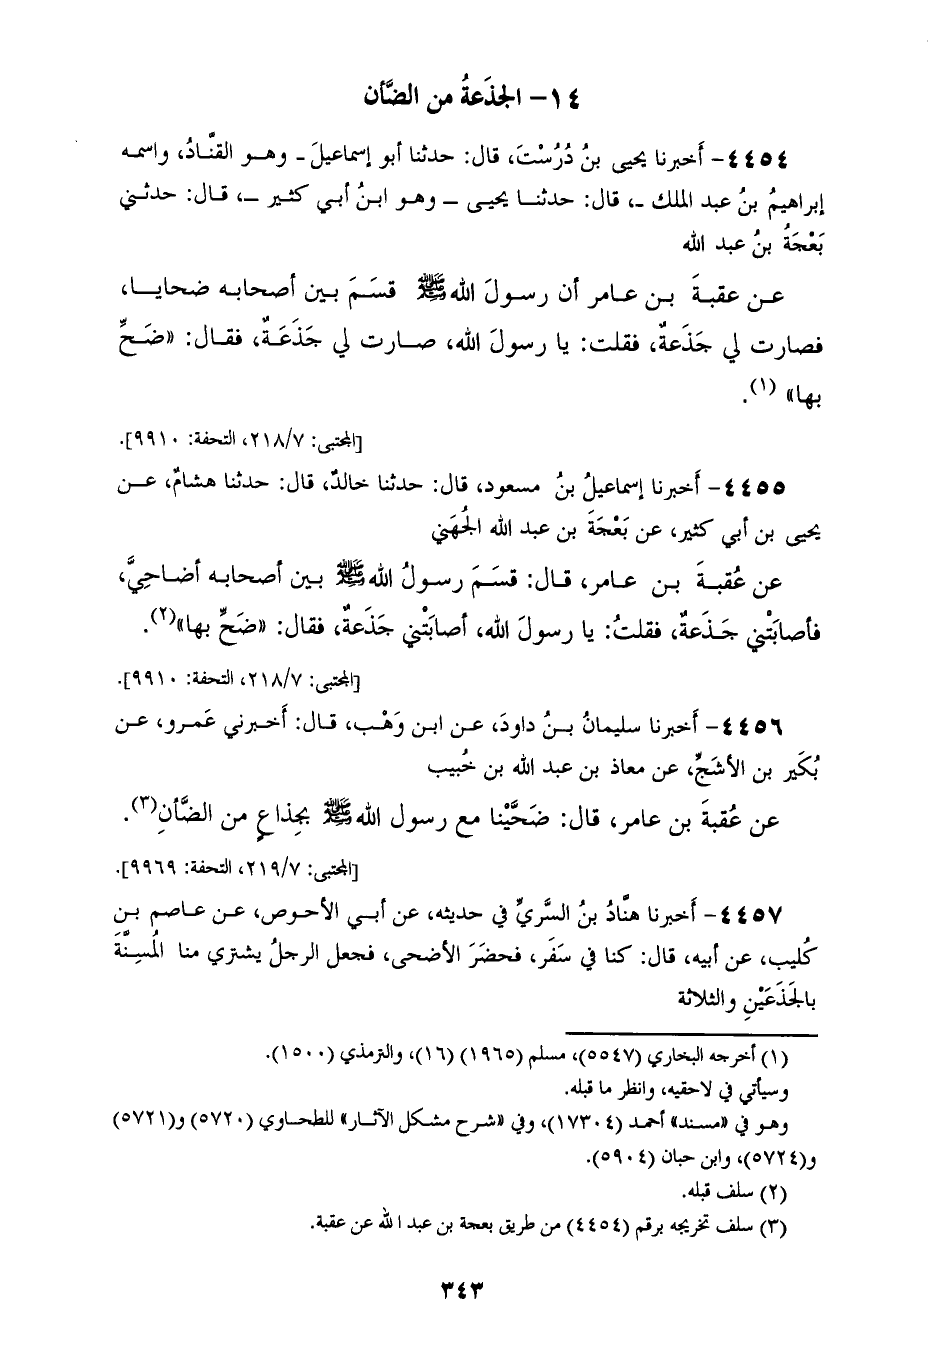 ١٤ - الجذَعةُ من الضَّأن
٤٤٥٤ - أَخبرنا يحيى بنُ دُرُسْتَ، قال: حدثنا أبو إسماعيلَ - وهـو القنَّادُ، واسمه
إبراهيمُ بنُ عبد الملك -، قال: حدثنـا يحيـى - وهـو ابـنُ أبي كثـير -، قـال: حدثـني
بَعْجَةُ بنُ عبد الله
عـن عقبـةَ بـن عـامر أن رسـولَ اللهﷺ قسَـمَ بـين أصحابـه ضحايـا،
فصارت لي جَذَعةٌ، فقلت: يا رسولَ الله، صـارت لي جَذَعَـةٌ، فقـال: «ضَـحِّ
بها»(١).
[المجتبى: ٢١٨/٧، التحفة: ٩٩١٠].
٤٤٥٥ - أَخبرنا إسماعيلُ بنُ مسعود، قال: حدثنا خالدٌ، قال: حدثنا هشامٌ، عـن
يحيى بن أبي كثير، عن بَعْجَةَ بن عبد الله الجُهَني
عن عُقبـةَ بـن عـامر، قـال: قسَـمَ رسـولُ اللهﷺ بـين أصحابـه أضـاحِيَّ،
فأصابَتْني جَـذَعةٌ، فقلتُ: يا رسولَ الله، أصابَتْني جَذَعةٌ، فقال: «ضَحِّ بها»(٢).
[المجتبى: ٢١٨/٧، التحفة: ٩٩١٠].
٤٤٥٦ - أَخبرنا سليمانُ بـنُ داودَ، عـن ابـن وَهْـب، قـال: أَخـبرني عَمـرو، عـن
بُكَير بن الأشَجِّ، عن معاذ بن عبد الله بن خُبيب
عن عُقبةَ بن عامر، قال: ضَحَّيْنا مع رسول اللهﷺ بجِذاعٍ من الضَّأنِ(٣).
[المجتبى: ٢١٩/٧، التحفة: ٩٩٦٩].
٤٤٥٧ - أَخبرنا هنَّادُ بنُ السَّريِّ في حديثه، عن أبـي الأحـوص، عـن عـاصم بـن
كُليب، عن أبيه، قال: كنا في سَفَر، فحضَرَ الأضحى، فجعل الرجلُ يشتري منا المُسِنَّةَ
بالجَذَعَيْنِ والثلاثة
(١) أخرجه البخاري (٥٥٤٧)، مسلم (١٩٦٥) (١٦)، والترمذي (١٥٠٠).
وسيأتي في لاحقيه، وانظر ما قبله.
وهـو في «مسند» أحمد (١٧٣٠٤)، وفي «شرح مشكل الآثـار» للطحـاوي (٥٧٢٠) و(٥٧٢١)
و(٥٧٢٤)، وابن حبان (٥٩٠٤).
(٢) سلف قبله.
(٣) سلف تخريجه برقم (٤٤٥٤) من طريق بعجة بن عبد الله عن عقبة.
٣٤٣